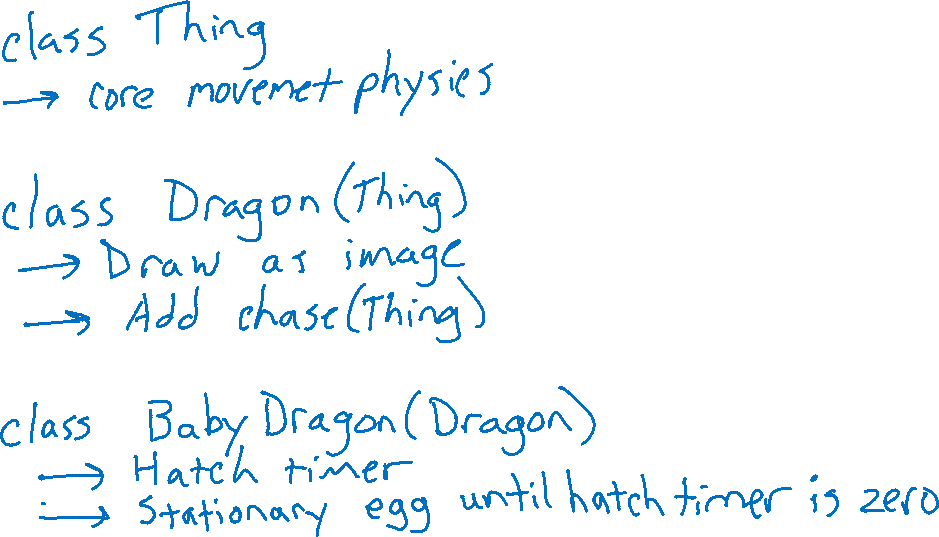 class Thing
→ core movemet physics
class Dragon(Thing)
→ Draw as image
→ Add chase(Thing)
class BabyDragon(Dragon)
→ Hatch timer
→ Stationary egg until hatch timer is zero